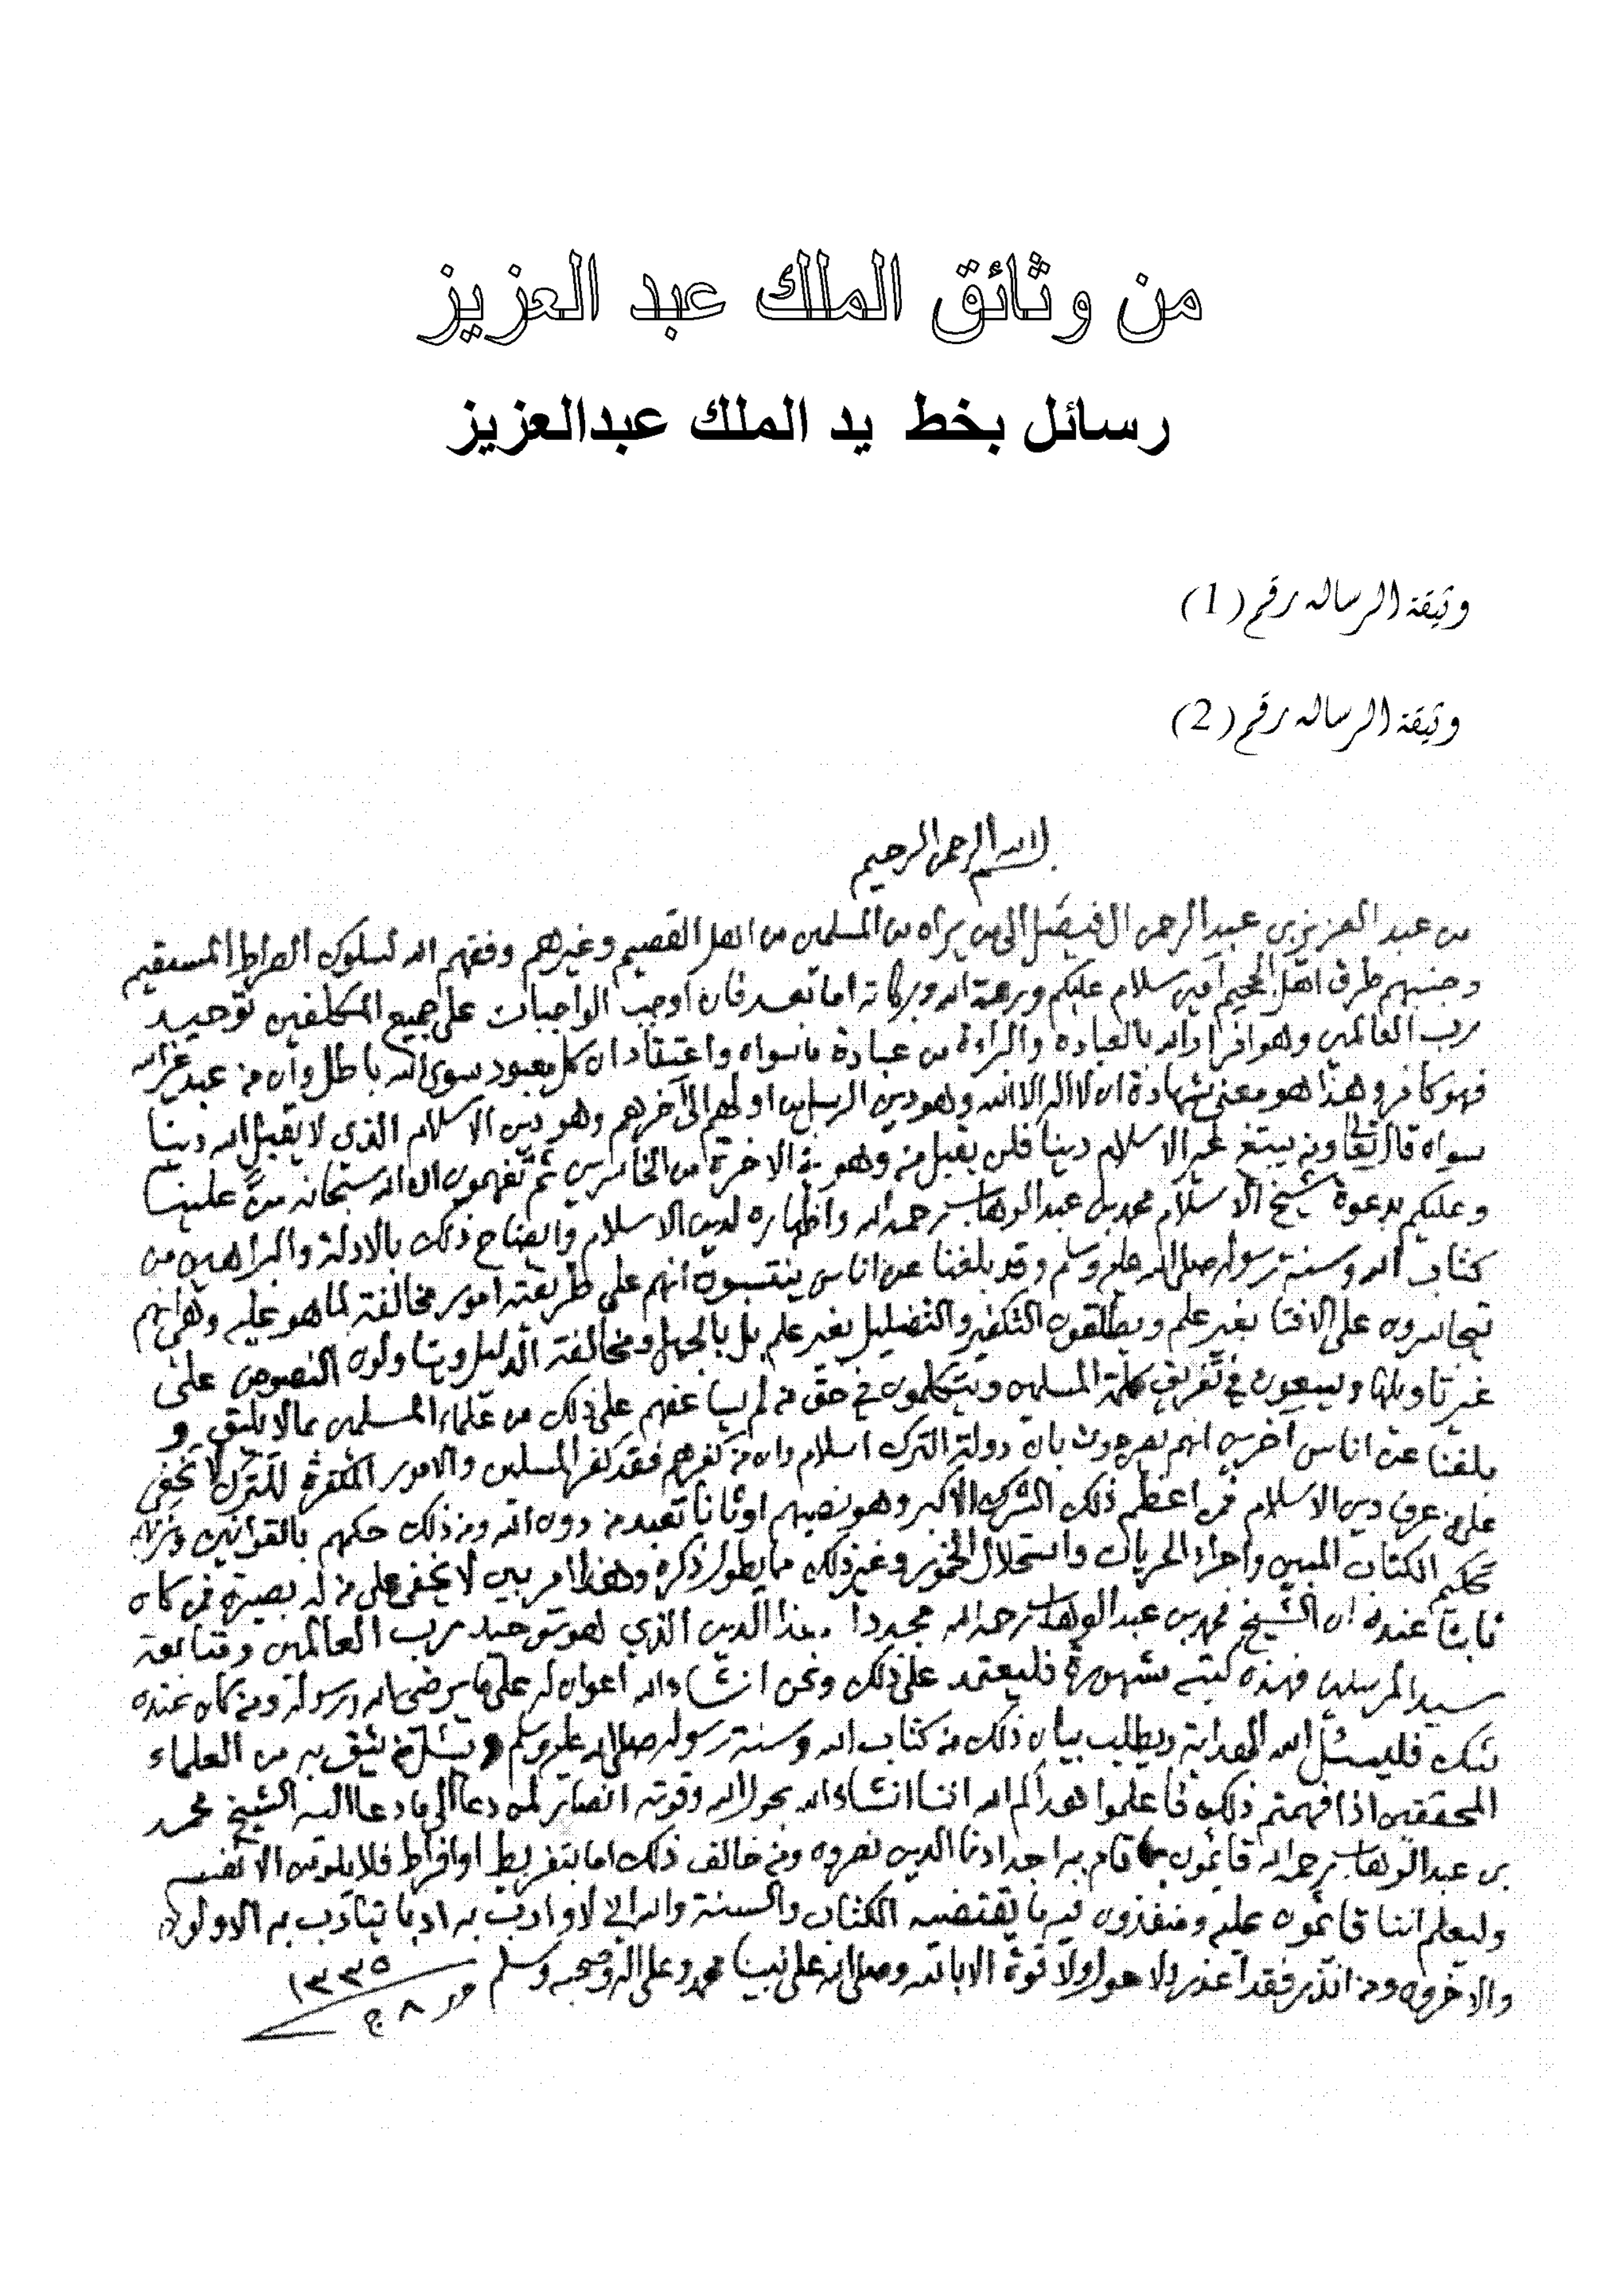 من وثائق الملك عبد العزيز
رسائل بخط يد الملك عبدالعزيز
وثيقة الرساله رقم (1)
وثيقة الرساله رقم (2)
بسم الله الرحمن الرحيم
من عبد العزيز بن عبد الرحمن ال فيصل الى من يراه من المسلمين من اهل القصيم وغيرهم وفقهم الله لسلوك الصراط المستقيم
وجنبهم طرق اهل الجحيم آمين سلام عليكم ورحمة الله وبركاته اما بعد فان اوجب الواجبات على جميع المكلفين توحيد
رب العالمين وهو افراد الله بالعباده والبراءة من عبادة ما سواه واعتقاد ان كل معبود سوى الله باطل وان من عبد غير الله
فهو كافر وهذا هو معنى شهادة ان لا اله الا الله وهو دين الرسل من اولهم الى آخرهم وهو دين الاسلام الذي لا يقبل الله دينا
سواه قال تعالى ومن يبتغ غير الاسلام دينا فلن يقبل منه وهو في الاخرة من الخاسرين ثم تفهمون ان الله سبحانه منّ علينا
وعليكم بدعوة شيخ الاسلام محمد بن عبد الوهاب رحمه الله واظهاره لدين الاسلام وايضاح ذلك بالادلة والبراهين من
كتاب الله وسنة رسوله صلى الله عليه وسلم وقد بلغنا عن اناس ينتسبون انهم على طريقته امور مخالفة لما هو عليه وهي انهم
يتجاسرون على الافتا بغير علم ويطلقون التكفير والتضليل بغير علم بل بالجهل ومخالفة الدليل ويتاولون النصوص على
غير تاويلها ويسعون في تفريق كلمة المسلمين ويتكلمون في حق من لم يساعفهم على ذلك من علماء المسلمين بما لا يليق و
بلغنا عن اناس آخرين انهم يصرحون بان دولة الترك اسلام وان من كفرهم فقد كفر المسلمين والامور المكفرة للترك لا تخفى
على من عرف دين الاسلام فمن اعظم ذلك الشرك الاكبر وهو نصبهم اوثانا تعبد من دون الله ومن ذلك حكمهم بالقوانين وترك
تحكيم الكتاب المبين واجراء الحريات واستحلال الخمور وغير ذلك مما يطول ذكره وهذا امر بين لا يخفى على من له بصيرة فمن كان
ثابتا عنده ان الشيخ محمد بن عبد الوهاب رحمه الله مجددا هذا الدين الذي هو توحيد رب العالمين ومتابعة
سيد المرسلين فهذه كتبه مشهورة فليعتمد على ذلك ونحن انشاء الله اعوان له على ما يرضي الله ورسوله ومن كان عنده
شك فليسئل الله الهداية ويطلب بيان ذلك من كتاب الله وسنة رسوله صلى الله عليه وسلم ويسئل من يثق به من العلماء
المحققين اذا فهمتم ذلك فاعلموا هداكم الله اننا انشاء الله بحول الله وقوته انصار لمن دعا الى ما دعا اليه الشيخ محمد
بن عبد الوهاب رحمه الله قائمون بما قام به اجدادنا الذين نصروه ومن خالف ذلك اما بتفريط او افراط فلا يلومن الا نفسه
وليعلم اننا قائمون عليه ومنفذون فيه ما يقتضيه الكتاب والسنة والله اني لاوادبه ادبا يتادب به الاولون
والاخرون ومن انذر فقد اعذر ولا حول ولا قوة الا بالله وصلى الله على نبينا محمد وعلى اله وصحبه وسلم
١٣٣٥